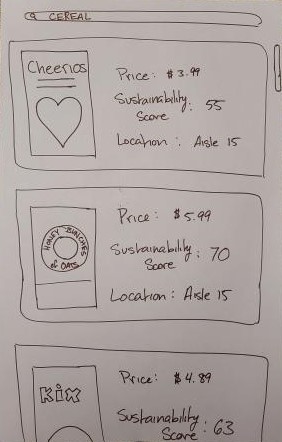 CEREAL
Cheerios
Price: $3.99
Sustainability
Score : 55
Location : Aisle 15
HONEY BUNCHES
of OATS
Price: $5.99
Sustainability
Score : 70
Location : Aisle 15
Kix
Price: $4.89
Sustainability
Score : 63